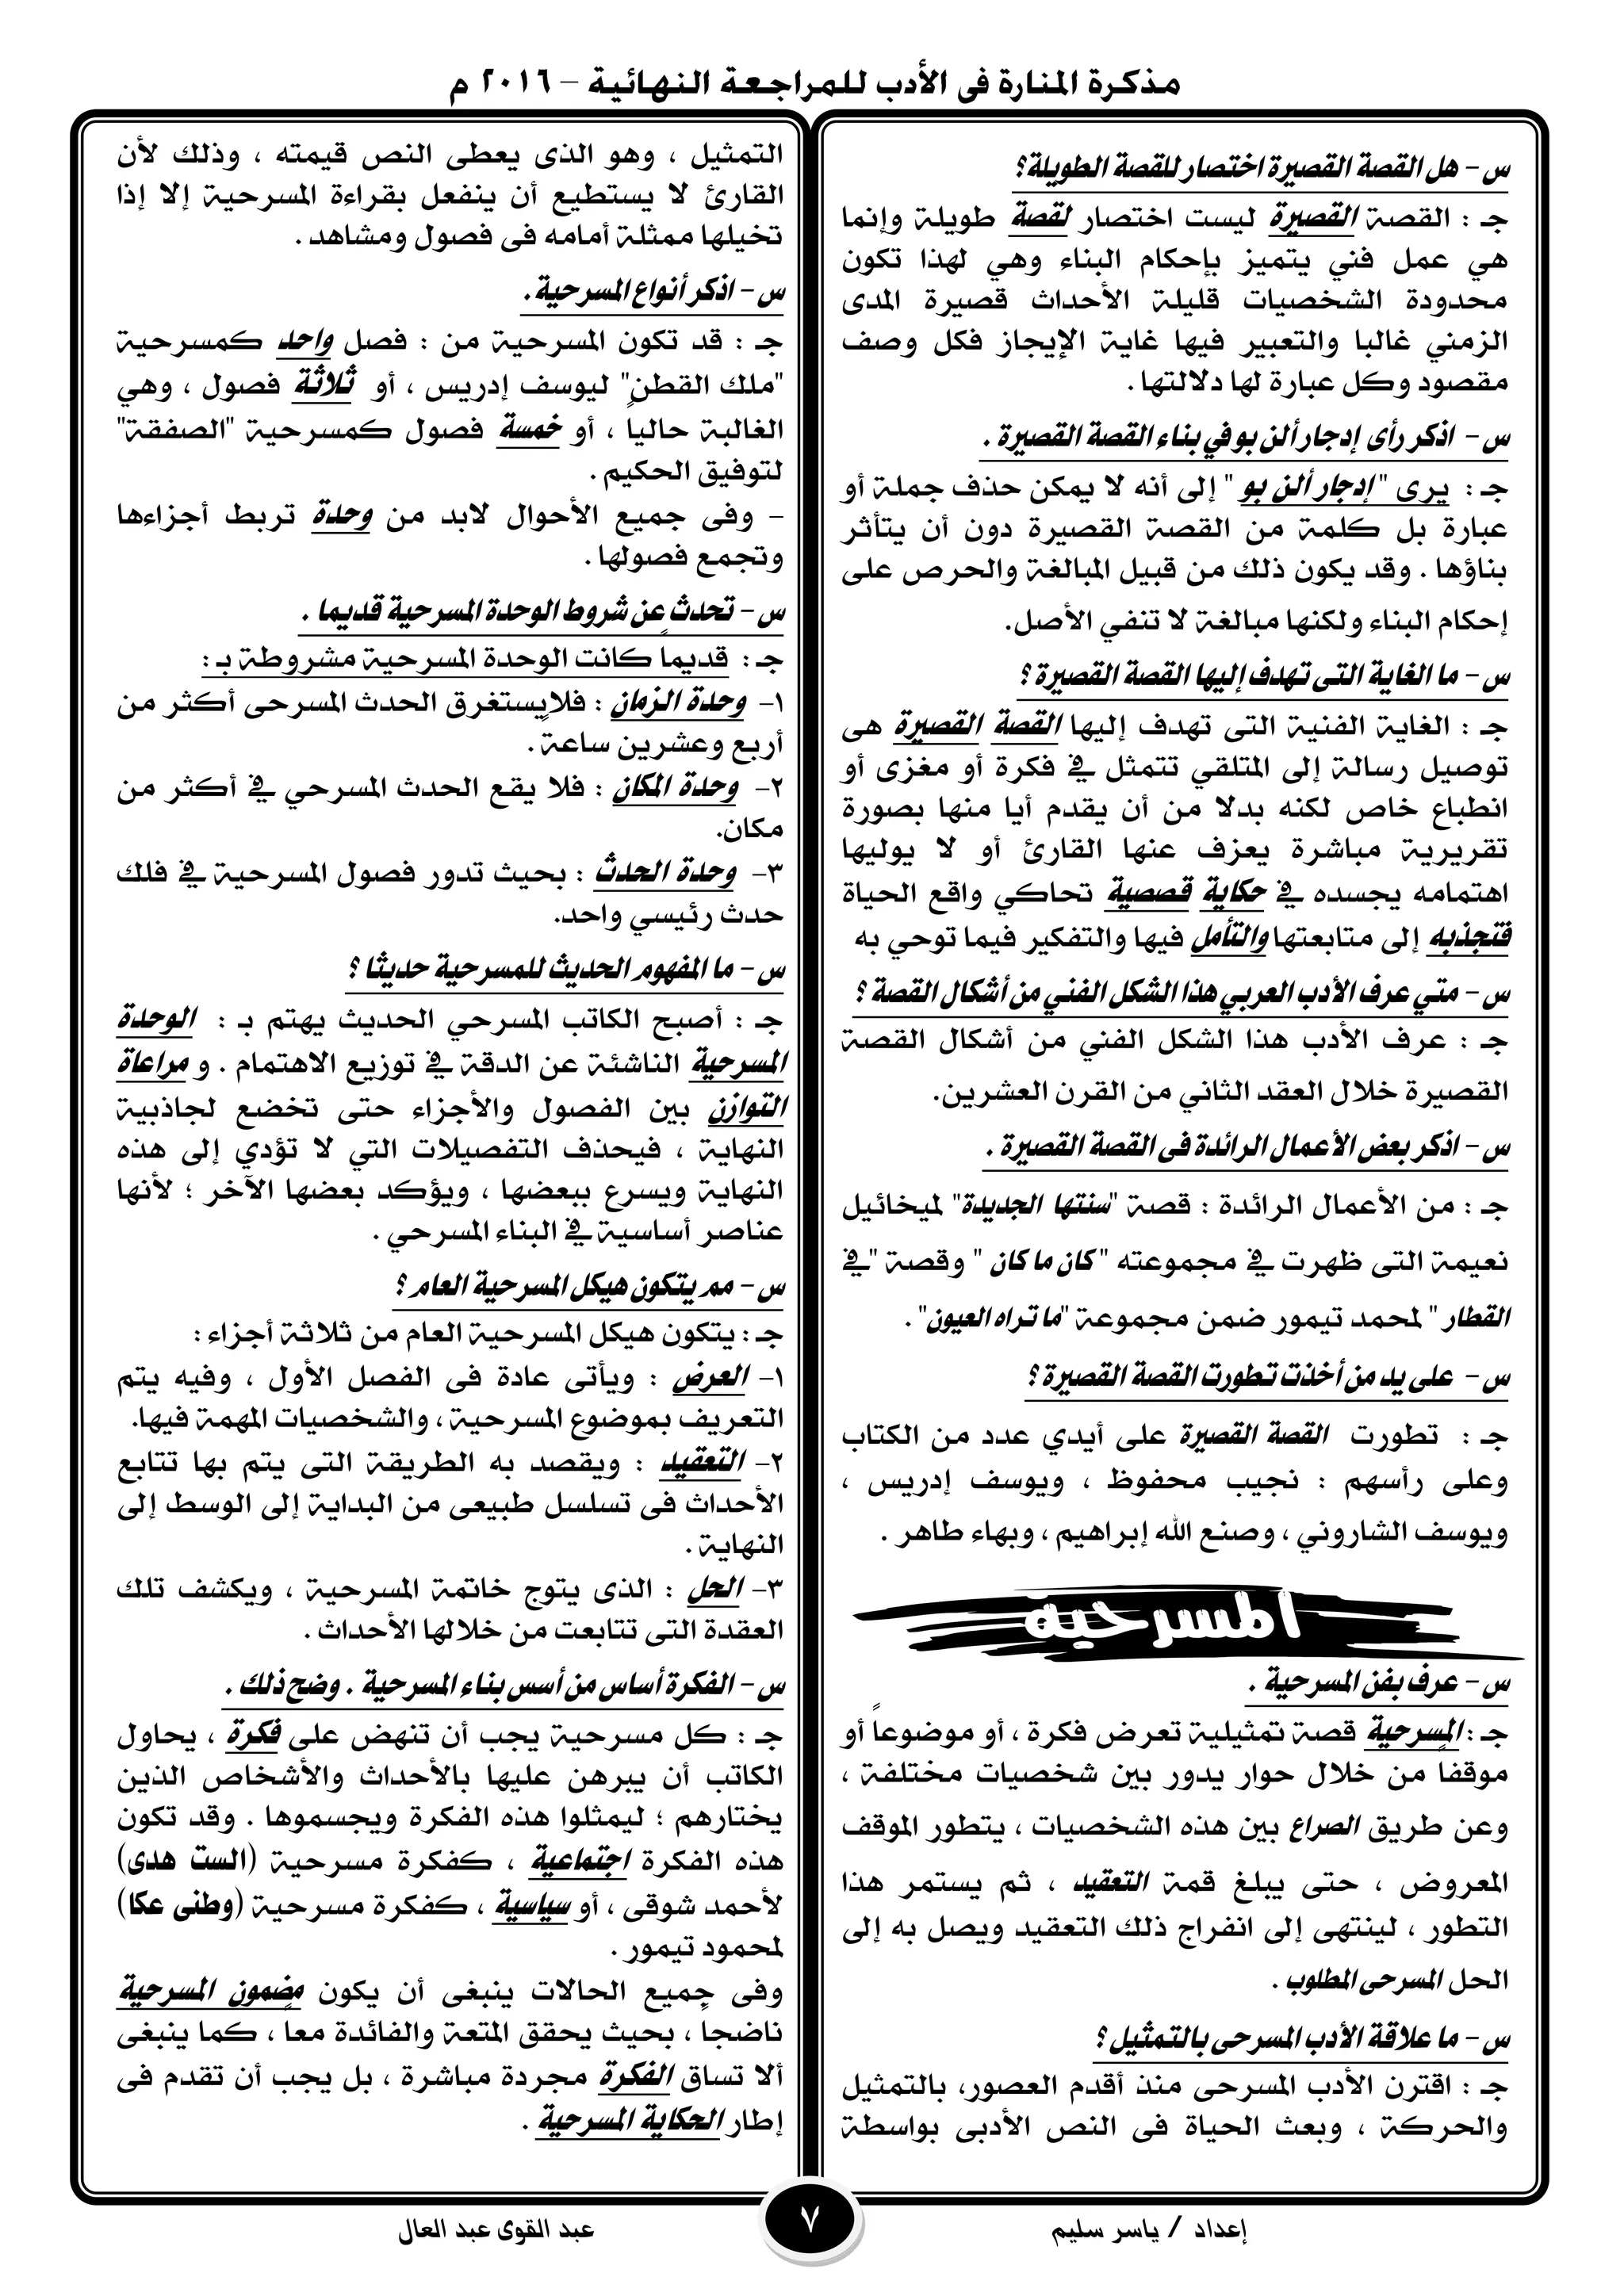 مذكرة المنارة فى الأدب للمراجعة النهائية – ٢٠١٦ م
س – هل القصة القصيرة اختصار للقصة الطويلة؟
جـ : القصة القصيرة ليست اختصار لقصة طويلة وإنما
هي عمل فني يتميز بإحكام البناء وهي لهذا تكون
محدودة الشخصيات قليلة الأحداث قصيرة المدى
الزمني غالبا والتعبير فيها غاية الإيجاز فكل وصف
مقصود وكل عبارة لها دلالتها .
س – اذكر رأى إدجار ألن بو في بناء القصة القصيرة .
جـ : يرى " إدجار ألن بو " إلى أنه لا يمكن حذف جملة أو
عبارة بل كلمة من القصة القصيرة دون أن يتأثر
بناؤها . وقد يكون ذلك من قبيل المبالغة والحرص على
إحكام البناء ولكنها مبالغة لا تنفي الأصل.
س – ما الغاية التى تهدف إليها القصة القصيرة ؟
جـ : الغاية الفنية التى تهدف إليها القصة القصيرة هى
توصيل رسالة إلى المتلقي تتمثل في فكرة أو مغزى أو
انطباع خاص لكنه بدلا من أن يقدم أيا منها بصورة
تقريرية مباشرة يعزف عنها القارئ أو لا يوليها
اهتمامه يجسده في حكاية قصصية تحاكي واقع الحياة
فتجذبه إلى متابعتها والتأمل فيها والتفكير فيما توحي به
س – متي عرف الأدب العربي هذا الشكل الفني من أشكال القصة ؟
جـ : عرف الأدب هذا الشكل الفني من أشكال القصة
القصيرة خلال العقد الثاني من القرن العشرين.
س – اذكر بعض الأعمال الرائدة فى القصة القصيرة .
جـ : من الأعمال الرائدة : قصة "سنتها الجديدة" لميخائيل
نعيمة التى ظهرت في مجموعته " كان ما كان " وقصة "في
القطار " لمحمد تيمور ضمن مجموعة "ما تراه العيون" .
س – على يد من أخذت تطورت القصة القصيرة ؟
جـ : تطورت القصة القصيرة على أيدي عدد من الكتاب
وعلى رأسهم : نجيب محفوظ ، ويوسف إدريس ،
ويوسف الشاروني ، وصنع الله إبراهيم ، وبهاء طاهر .
المسرحية
س – عرف بفن المسرحية .
جـ : المسرحية قصة تمثيلية تعرض فكرة ، أو موضوعاً أو
موقفاً من خلال حوار يدور بين شخصيات مختلفة ،
وعن طريق الصراع بين هذه الشخصيات ، يتطور الموقف
المعروض ، حتى يبلغ قمة التعقيد ، ثم يستمر هذا
التطور ، لينتهى إلى انفراج ذلك التعقيد ويصل به إلى
الحل المسرحى المطلوب .
س – ما علاقة الأدب المسرحى بالتمثيل ؟
جـ : اقترن الأدب المسرحى منذ أقدم العصور، بالتمثيل
والحركة ، وبعث الحياة فى النص الأدبى بواسطة
التمثيل ، وهو الذى يعطى النص قيمته ، وذلك لأن
القارئ لا يستطيع أن ينفعل بقراءة المسرحية إلا إذا
تخيلها ممثلة أمامه فى فصول ومشاهد .
س – اذكر أنواع المسرحية .
جـ : قد تكون المسرحية من : فصل واحد كمسرحية
"ملك القطن" ليوسف إدريس ، أو ثلاثة فصول ، وهي
الغالبة حالياً ، أو خمسة فصول كمسرحية "الصفقة"
لتوفيق الحكيم .
– وفى جميع الأحوال لابد من وحدة تربط أجزاءها
وتجمع فصولها .
س – تحدث عن شروط الوحدة المسرحية قديما .
جـ : قديماً كانت الوحدة المسرحية مشروطة بـ :
١– وحدة الزمان : فلايستغرق الحدث المسرحى أكثر من
أربع وعشرين ساعة .
٢– وحدة المكان : فلا يقع الحدث المسرحي في أكثر من
مكان.
٣– وحدة الحدث : بحيث تدور فصول المسرحية في فلك
حدث رئيسي واحد.
س – ما المفهوم الحديث للمسرحية حديثا ؟
جـ : أصبح الكاتب المسرحي الحديث يهتم بـ : الوحدة
المسرحية الناشئة عن الدقة في توزيع الاهتمام . و مراعاة
التوازن بين الفصول والأجزاء حتى تخضع لجاذبية
النهاية ، فيحذف التفصيلات التي لا تؤدي إلى هذه
النهاية ويسرع ببعضها ، ويؤكد بعضها الآخر ؛ لأنها
عناصر أساسية في البناء المسرحي .
س – مم يتكون هيكل المسرحية العام ؟
جـ : يتكون هيكل المسرحية العام من ثلاثة أجزاء :
١– العرض : ويأتى عادة فى الفصل الأول ، وفيه يتم
التعريف بموضوع المسرحية ، والشخصيات المهمة فيها.
٢– التعقيد : ويقصد به الطريقة التى يتم بها تتابع
الأحداث فى تسلسل طبيعى من البداية إلى الوسط إلى
النهاية .
٣– الحل : الذى يتوج خاتمة المسرحية ، ويكشف تلك
العقدة التى تتابعت من خلالها الأحداث .
س – الفكرة أساس من أسس بناء المسرحية . وضح ذلك .
جـ : كل مسرحية يجب أن تنهض على فكرة ، يحاول
الكاتب أن يبرهن عليها بالأحداث والأشخاص الذين
يختارهم ؛ ليمثلوا هذه الفكرة ويجسموها . وقد تكون
هذه الفكرة اجتماعية ، كفكرة مسرحية (الست هدى)
لأحمد شوقى ، أو سياسية ، كفكرة مسرحية (وطنى عكا)
لمحمود تيمور .
وفى جميع الحالات ينبغى أن يكون مضمون المسرحية
ناضجاً ، بحيث يحقق المتعة والفائدة معاً ، كما ينبغى
ألا تساق الفكرة مجردة مباشرة ، بل يجب أن تقدم فى
إطار الحكاية المسرحية .
إعداد / ياسر سليم
٧
عبد القوى عبد العال